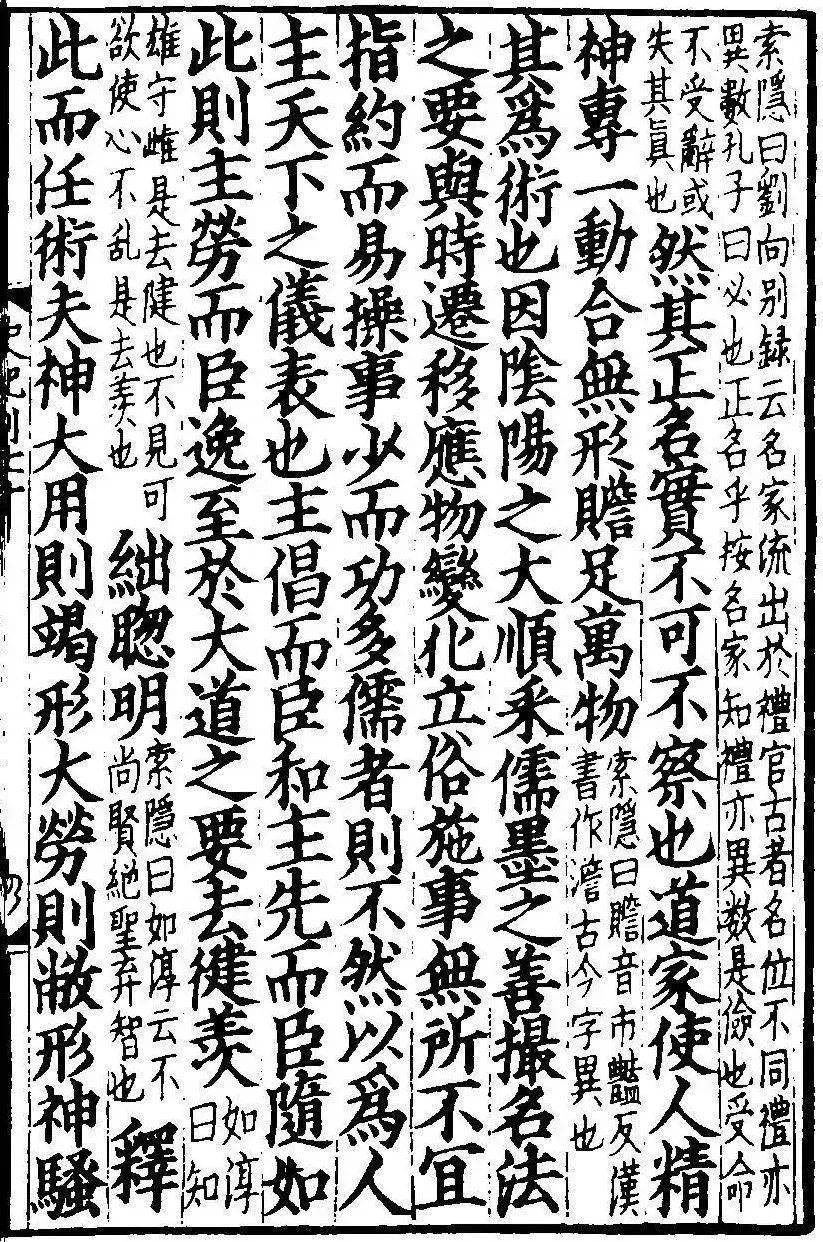 索隱曰劉向別録云名家流出於禮官古者名位不同禮亦
異數孔子曰必也正名乎按名家知禮亦異数是儉也受命
不受辭或
失其眞也
然其正名實不可不察也道家使人精
神專一動合無形贍足萬物
索隱曰贍音市豔反漢
書作澹古今字異也
其爲術也因陰陽之大順采儒墨之善撮名法
之要與時遷移應物變化立俗施事無所不冝
指約而易操事少而功多儒者則不然以爲人
主天下之儀表也主倡而臣和主先而臣隨如
此則主勞而臣逸至於大道之要去健羨
如淳
曰知
雄守雌是去健也不見可
欲使心不乱是去羨也
絀聦明
索隱曰如淳云不
尚賢絶聖弃智也
釋
此而任術夫神大用則竭形大勞則敝形神騷